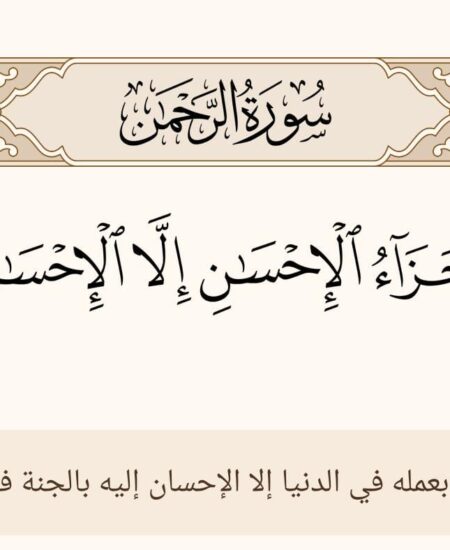 سُورَةُ الرَّحْمَٰن
جَزَآءُ ٱلْإِحْسَٰنِ إِلَّا ٱلْإِحْسَٰ
بعمله في الدنيا إلا الإحسان إليه بالجنة ف